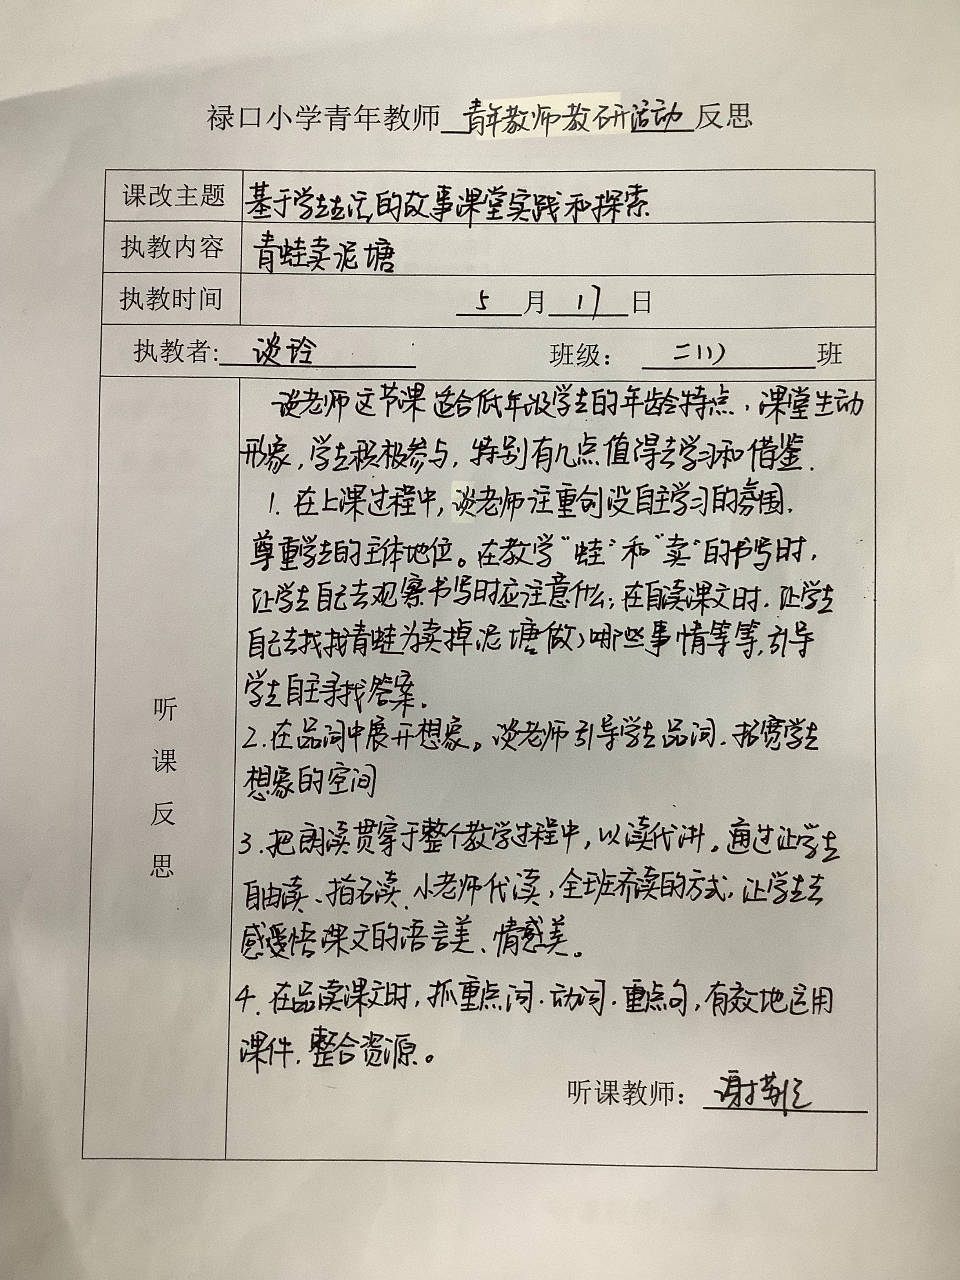 禄口小学青年教师 青年教师教研活动 反思
课改主题 基于学生生活的故事课堂实践和探索
执教内容 青蛙卖泥塘
执教时间 5 月 17 日
执教者: 谈 班级： 二(1) 班
听课反思
谈老师这节课适合低年级学生的年龄特点，课堂生动
形象，学生积极参与，特别有几点值得去学习和借鉴.
1. 在上课过程中，谈老师注重创设自主学习的氛围.
尊重学生的主体地位。在教学“蛙”和“卖”的书写时，
让学生自己去观察书写时应注意什么；在自读课文时，让学生
自己去找找青蛙为卖掉泥塘做了哪些事情等等，引导
学生自主寻找答案.
2.在品词中展开想象。谈老师引导学生品词，拓宽学生
想象的空间
3.把朗读贯穿于整个教学过程中，以读代讲。通过让学生
自由读、指名读、小老师代读，全班齐读的方式，让学生去
感受悟课文的语言美、情感美。
4. 在品读课文时，抓重点词.动词.重点句，有效地运用
课件.整合资源。
听课教师： 谢